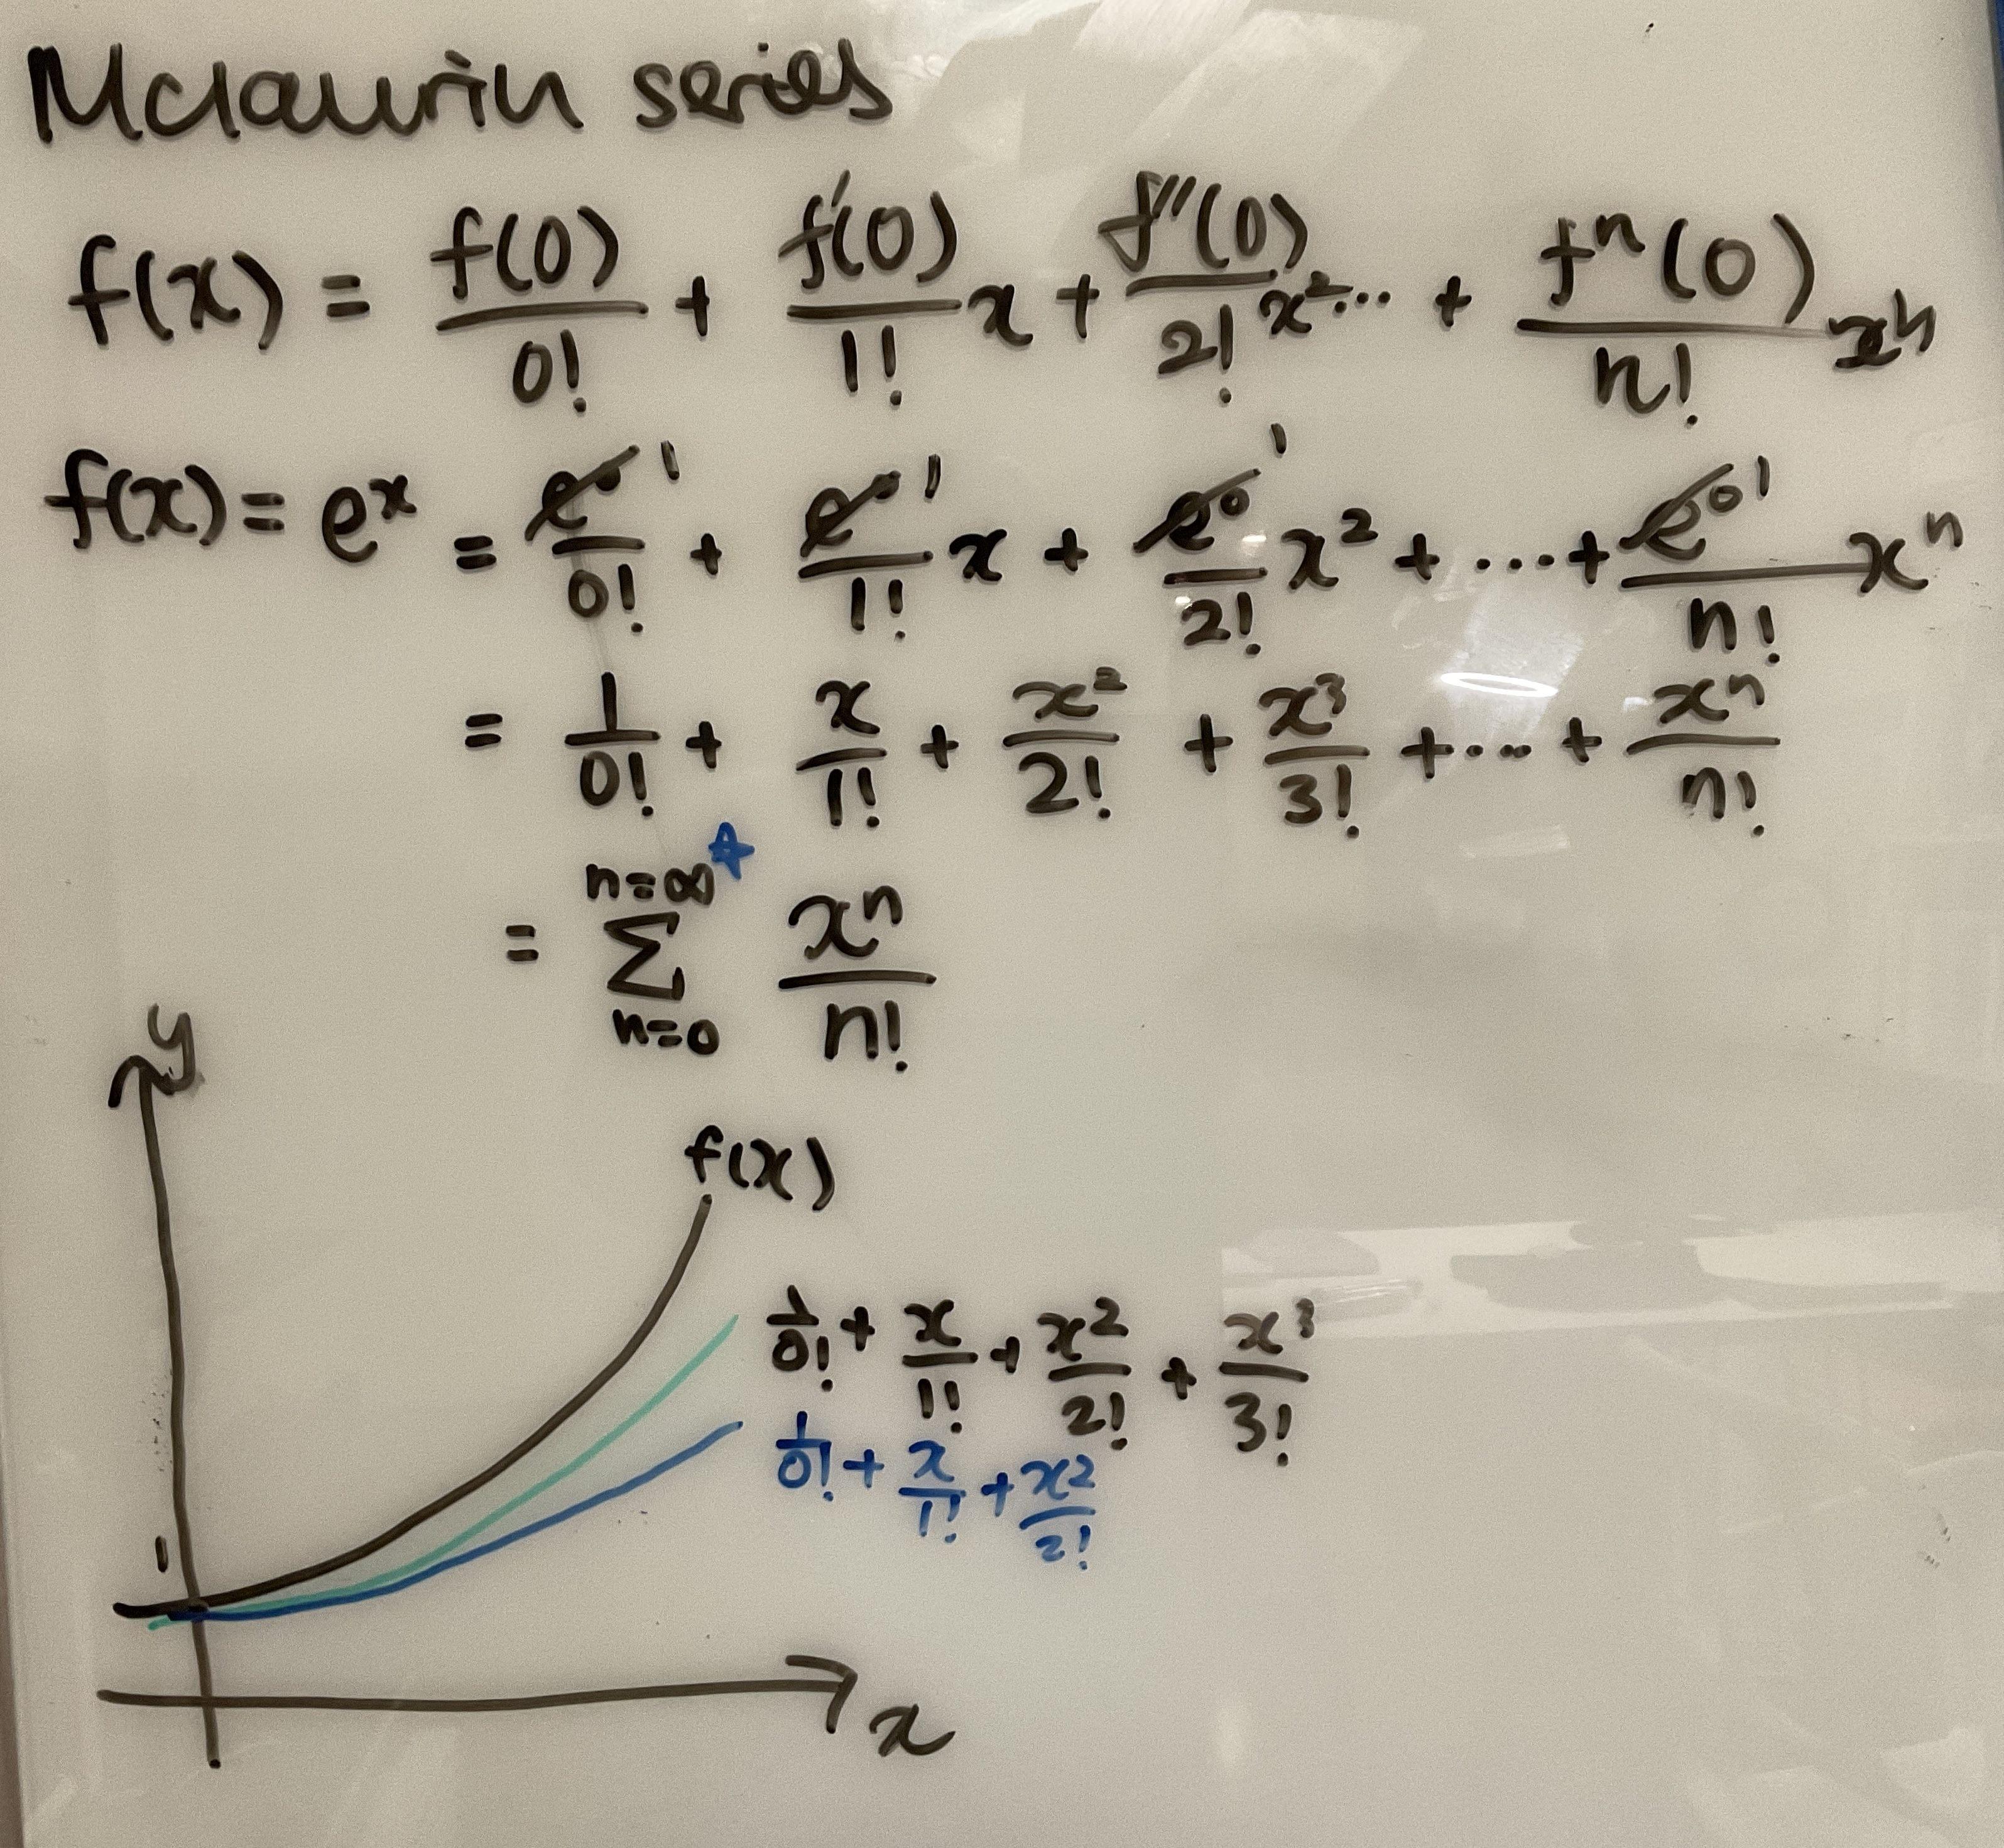 Mclaurin series
f(x) = f(0)/0! + f'(0)/1! x + f''(0)/2! x²... + fⁿ(0)/n! xⁿ
f(x) = eˣ = e⁰/0! 1 + e⁰/1! 1 x + e⁰/2! 1 x² + ... + e⁰/n! 1 xⁿ
= 1/0! + x/1! + x²/2! + x³/3! + ... + xⁿ/n!
n=∞
= Σ xⁿ/n!
n=0
y
f(x)
1/0! + x/1! + x²/2! + x³/3!
1/0! + x/1! + x²/2!
1
x